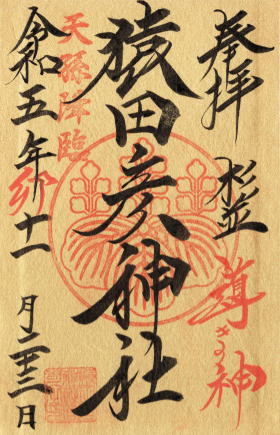 奉拝
杉並
導きの神
猿田彦神社
天孫降臨
令和五年十一月二十三日